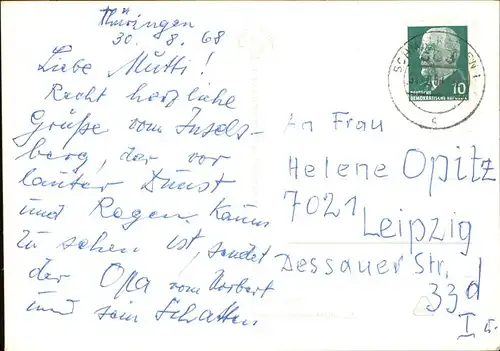 Thüringen
30. 8. 68
Liebe Mutti!
Recht herzliche
Grüße vom Insels-
berg, der vor
lauter Dunst
und Regen kaum
zu sehen ist, sendet
der Opa vom Norbert
und sein Schatten
10
An Frau
Helene Opitz
7021
Leipzig
Dessauer Str.
33d
I